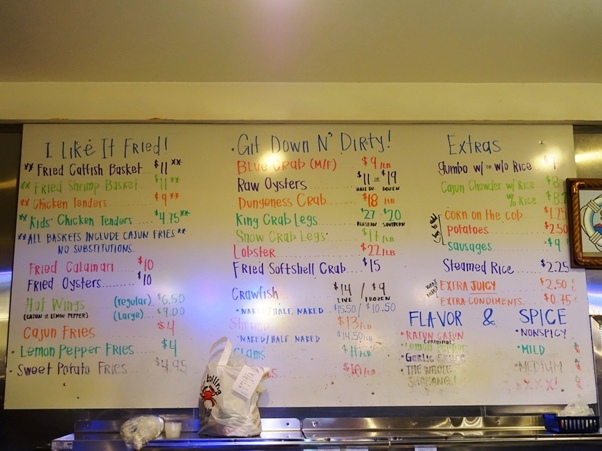 I Like It Fried!
** Fried Catfish Basket .... $11 **
** Fried Shrimp Basket ... $11 **
** Chicken Tenders ... $9 **
** Kids' Chicken Tenders ... $4.75 **
** ALL BASKETS INCLUDE CAJUN FRIES **
NO SUBSTITUTIONS.
Fried Calamari ... $10
Fried Oysters ... $10
Hot Wings (regular) $6.50
(CAJUN or LEMON PEPPER) (large) $9.00
Cajun Fries $4
• Lemon Pepper Fries ... $4
• Sweet Potato Fries ... $4.95
• Git Down N' Dirty!
Blue Crab (M/F) $9/LB
Raw Oysters $11 or $19
HALF DZ DOZEN
Dungeness Crab $18/LB
King Crab Legs $27 $20
SOUTHERN
Snow Crab Legs $17/LB
Lobster $22/LB
Fried Softshell Crab .. $15
Crawfish $14 / $9
LIVE / FROZEN
• NAKED/HALF NAKED $15.50 / $10.50
$13/LB
• NAKED/HALF NAKED $14.50/LB
Clams $11/LB
Extras
Gumbo w/ or w/o Rice
Cajun Chowder w/ Rice $8
w/o Rice
CORN on the COB ... $1.25
POTATOES $2.50
SAUSAGES $9
Steamed Rice $2.25
EXTRA JUICY $2.50
EXTRA CONDIMENTS. $0.75
FLAVOR & SPICE
• RAJUN CAJUN
• Garlic Sauce
• THE WHOLE SHABANG!
• NONSPICY
• MILD
• MEDIUM
• XXX!